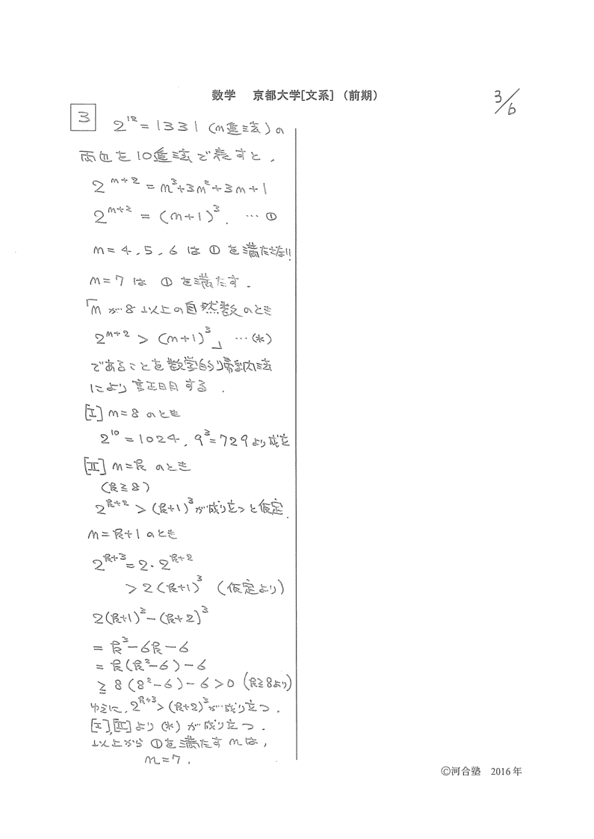 数学 京都大学[文系]（前期）
3/6
3
2^12=1331 (n進法) の
両辺を10進法で表すと，
2^{n+2} = n^3+3n^2+3n+1
2^{n+2} = (n+1)^3. … ①
n=4, 5, 6 は ① を満たさない!!
n=7 は ① を満たす.
「nが8以上の自然数のとき
2^{n+2} > (n+1)^3」 …(*)
であることを数学的帰納法
により証明する.
[I] n=8 のとき
2^10=1024, 9^3=729 より成立
[II] n=k のとき
(k≧8)
2^{k+2} > (k+1)^3 が成り立つと仮定.
n=k+1 のとき
2^{k+3} = 2・2^{k+2}
> 2(k+1)^3 (仮定より)
2(k+1)^3-(k+2)^3
= k^3-6k-6
= k(k^2-6)-6
≧ 8(8^2-6)-6>0 (k≧8より)
ゆえに, 2^{k+3}>(k+2)^3 が成り立つ.
[I],[II] より (*) が成り立つ.
以上から ①を満たす n は,
n=7.
©河合塾 2016年